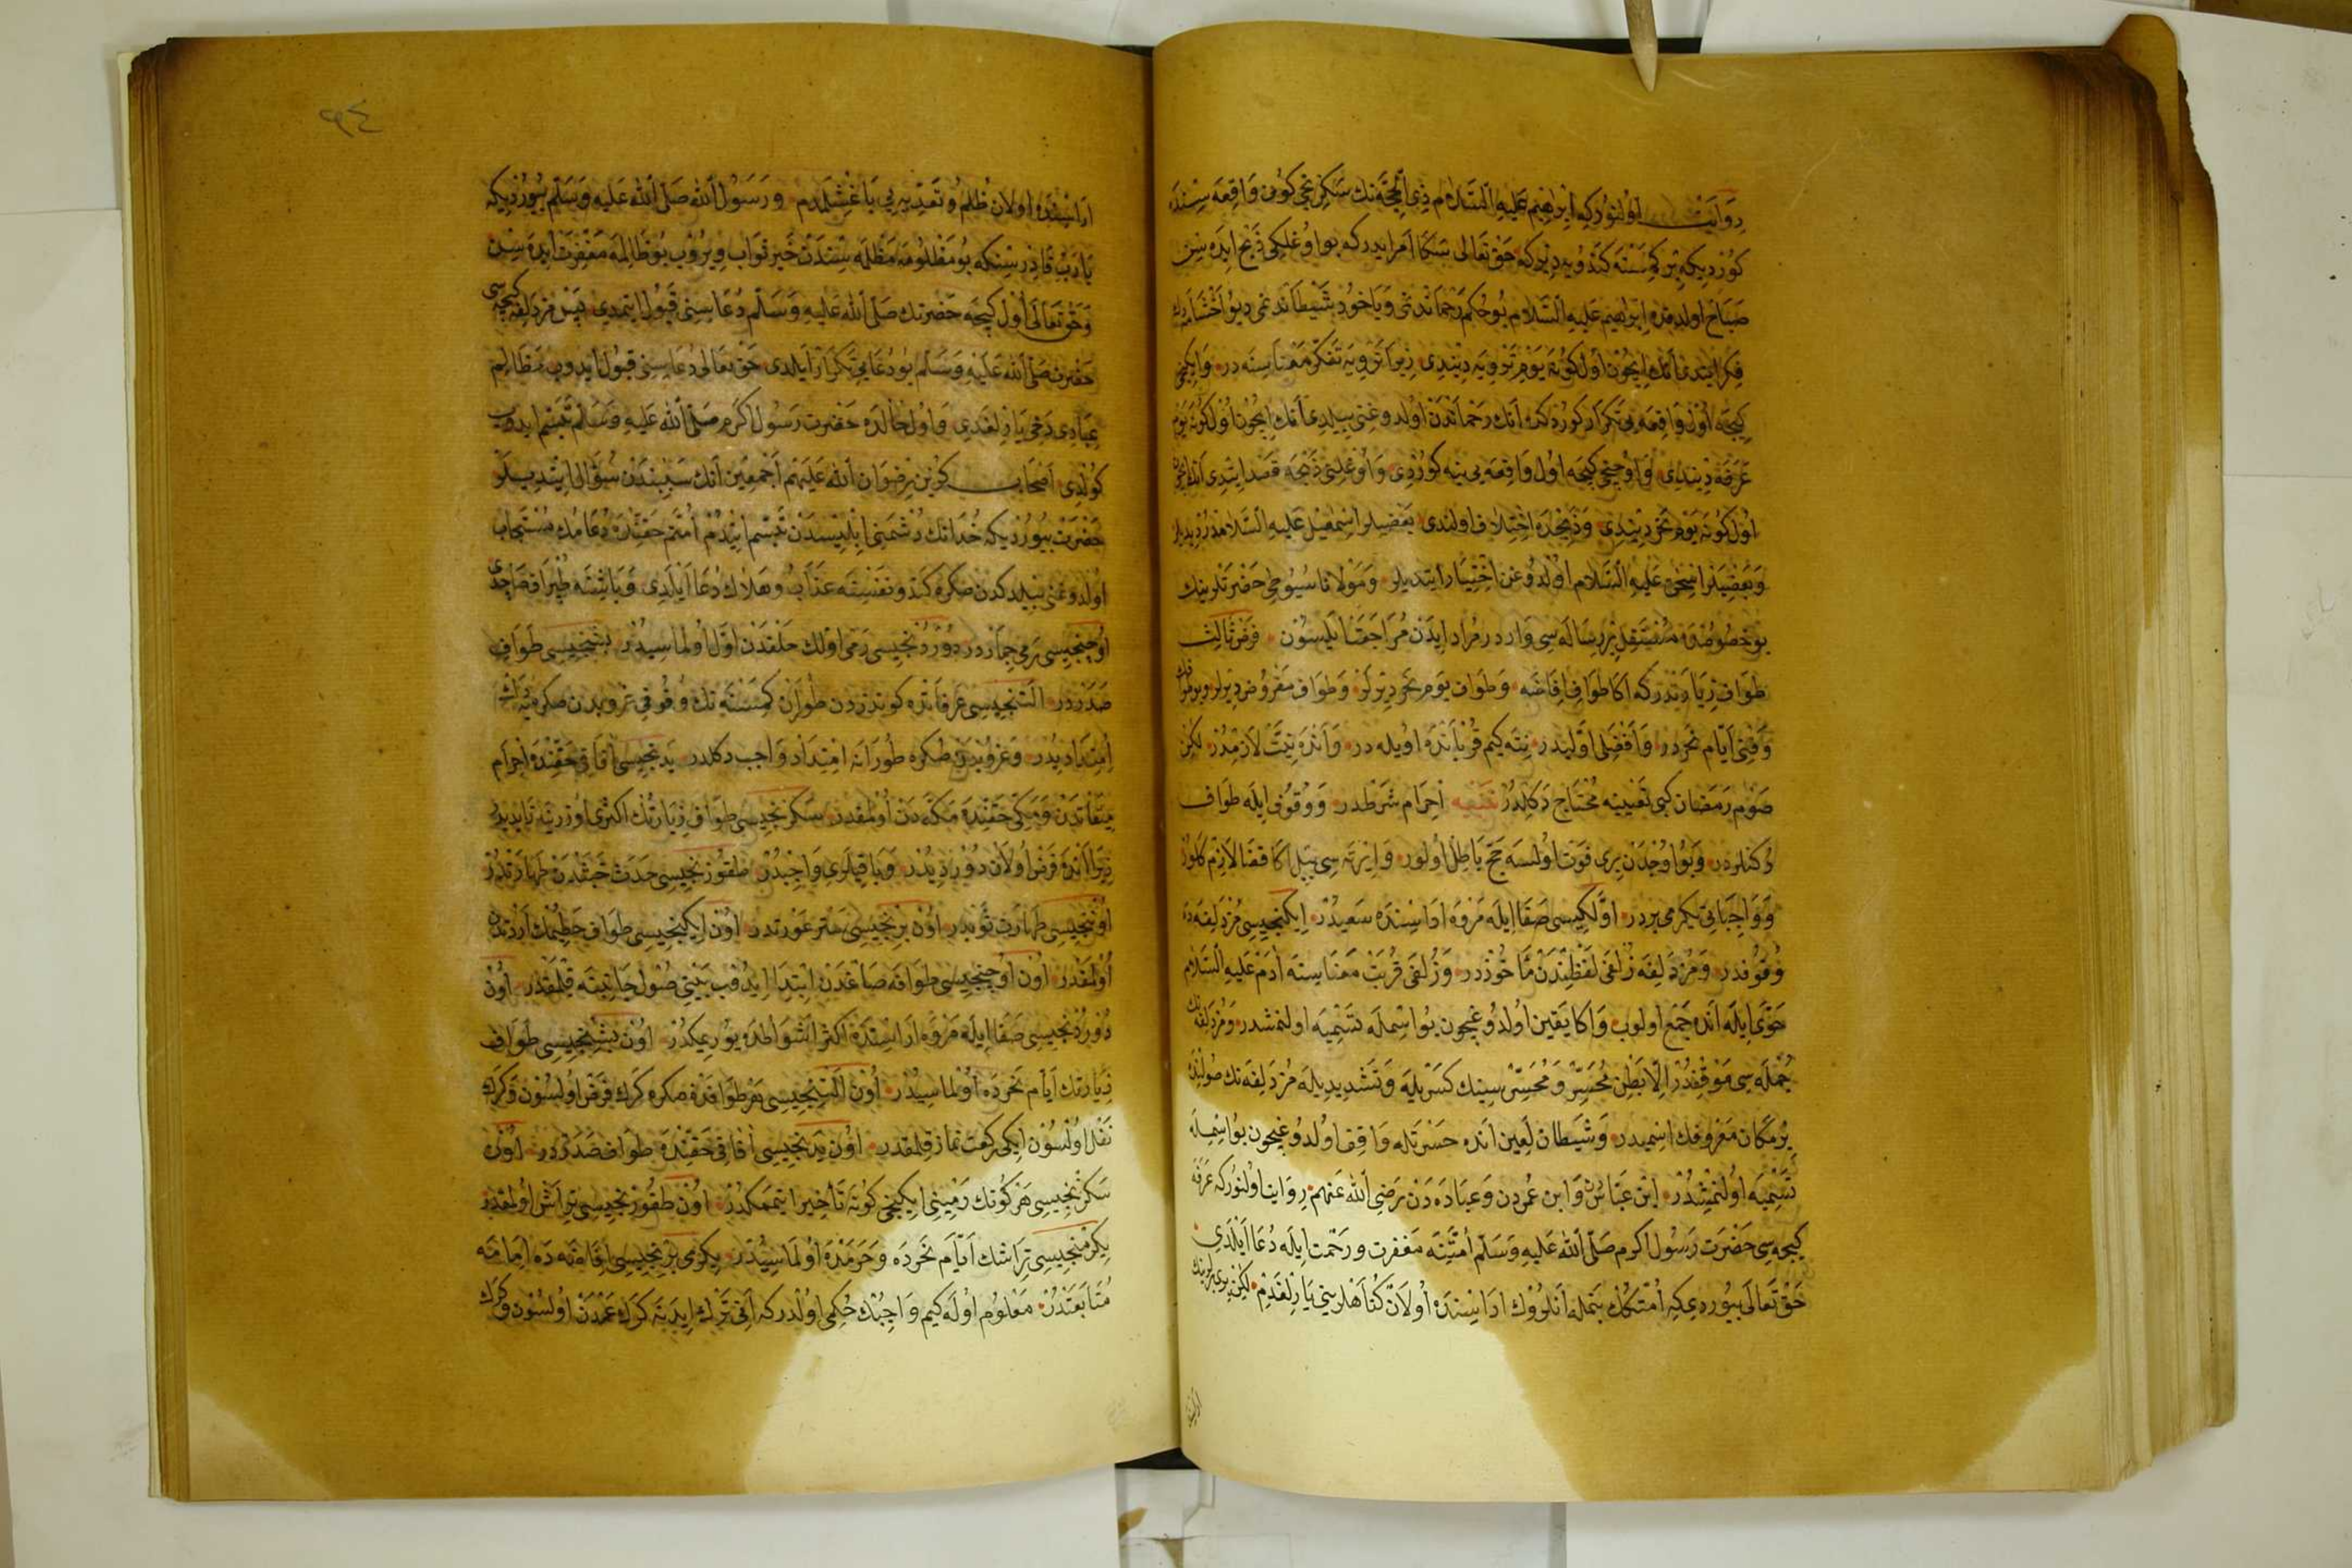 روايت اولنوركه ابراهيم عليه السلام ذى الحجه نك سكزنجى كونى واقعه سنده
كوردیكه بر كمسنه كندويه ديركه حق تعالى سكا امر ايدر كه بو اوغلكى ذبح ايده سن
صباح اولدقده ابراهيم عليه السلام بو حكم رحماندنمى وياخود شيطاندنمى ديو
فكر ايتدى انك ايچون اول كونه يوم ترويه دينلدى زيرا ترويه تفكر معناسنه در وايكنجى
كيجه اول واقعه يى تكرار كوردكده انك رحماندن اولدوغنى بيلدى انك ايچون اول كونه يوم
عرفه دينلدى واوچنجى كيجه اول واقعه يى ينه كوردى واوغلنى ذبحه قصد ايتدى
اول كونه يوم نحر دينلدى وذبيحده اختلاف اولندى بعضيلر اسمعيل عليه السلامدر ديديلر
وبعضيلر اسحق عليه السلام اولدوغن اختيار ايتديلر ومولانا سيوطى حضرتلرينك
بو خصوصده مستقل بر رساله سى واردر مراد ايدن مراجعت ايلسون فرض ثالث
طواف زيارتدر كه اكا طواف افاضه وطواف يوم نحر ديرلر وطواف مفروض ديرلر
وقتى ايام نحردر وافضلى اوليدر نته كيم قرباندە اويله در وانده نيت لازمدر لكن
صوم رمضان كبى تعيينه محتاج دكلدر احرام شرطدر ووقوف ايله طواف
ركنلردر وبو اوچدن برى فوت اولسه حج باطل اولور وايرته سى ييل اكا قضا لازم كلور
وواجباتى يكرمى بردر اولكيسى صفا ايله مروه اراسنده سعيدر ايكنجيسى مزدلفه ده
وقوفدر ومزدلفه زلفى لفظندن مأخوذدر وزلفى قربت معناسنه ادم عليه السلام
حوى ايله انده جمع اولوب واكا يقين اولدوغيچون بو اسمله تسميه اولنمشدر ومزدلفه نك
جمله سى موقفدر الا بطن محسر ومحسر سينك كسريله وتشديديله مزدلفه نك صولنده
بر مكان معروفك اسميدر وشيطان لعين انده حسرتله واقف اولدوغيچون بو اسمله
تسميه اولنمشدر ابن عباس وابن عمردن وعباده دن رضى الله عنهم روايت اولنوركه عرفه
كيجه سى حضرت رسول اكرم صلى الله عليه وسلم امتنه مغفرت ورحمت ايله دعا ايلدى
حق تعالى بيوردى كه امتكك جمله انلروك اراسنده اولان كناهلرينى يارلغدم لكن برى برينك
اراسنده
٩٤
اراسنده اولان ظلم وتعديه يى باغشلمدم ورسول الله صلى الله عليه وسلم بيورديكه
يا رب قادرسنكه بو مظلومه مظلمه سندن خير ثواب ويروب بو ظالمه مغفرت ايده سن
وحق تعالى اول كيجه حضرتك صلى الله عليه وسلم دعاسنى قبول ايتمدى پس مزدلفه كيجه سى
حضرت صلى الله عليه وسلم بو دعايى تكرار ايلدى حق تعالى دعاسنى قبول ايدوب مظالم
عبادى دخى يارلغدى واول حالده حضرت رسول اكرم صلى الله عليه وسلم تبسم ايدوب
كولدى اصحاب كزين رضوان الله عليهم اجمعين انك سببندن سؤال ايتديلر
حضرت بيورديكه خدانك دشمنى ابليسدن تبسم ايتدم امتم حقنده دعامك مستجاب
اولدوغنى بيلدكدن صكره كندو نفسنه عذاب وهلاك دعا ايلدى وباشنه طپراق صاچدى
اوچنجيسى رمى جماردر دوردنجيسى رمى اولك حلقدن اول اولماسيدر بشنجيسى طواف
صدردر التنجيسى عرفاتده كوندزدن طوران كمسنه نك وقوفى غروبدن صكره يه دك
امتداديدر وغروبدن صكره طورانه امتداد واجب دكلدر يدنجيسى افاقى حقنده احرام
ميقاتدن ومكى حقنده مكه دن اولمقدر سكزنجيسى طواف زيارتك اكثرى اوزرينه زايديدر
زيرا انده فرض اولان دورديدر وباقيلرى واجبدر طقوزنجيسى حدث خبثدن طهارتدر
اوننجيسى طهارت ثوبدر اون برنجيسى ستر عورتدر اون ايكنجيسى طواف حطيمك اردندن
اولمقدر اون اوچنجيسى طوافه صاغدن ابتدا ايدوب بيتى صول جانبنه قلمقدر اون
دوردنجيسى صفا ايله مروه اراسنده اكثر اشواطده يورمكدر اون بشنجيسى طواف
زيارتك ايام نحرده اولماسيدر اون التنجيسى هر طوافدن صكره كرك فرض اولسون وكرك
نفل اولسون ايكى ركعت نماز قلمقدر اون يدنجيسى افاقى حقنده طواف صدردر اون
سكزنجيسى هر كونك رمينى ايكنجى كونه تأخير ايتممكدر اون طقوزنجيسى تراش اولمقدر
يكرمنجيسى تراشك ايام نحرده وحرمده اولماسيدر يكرمى برنجيسى افاضه ده امامه
متابعتدر معلوم اوله كيم واجبك حكمى اولدر كه انى ترك ايدنه كرك عمدن اولسون وكرك